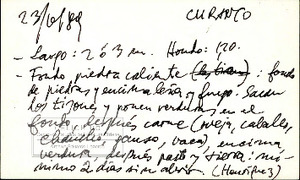 23/6/89 CURANTO
- Largo: 2 ó 3 m. Hondo: 1.20.
- Fondo, piedra caliente : fondo
de piedras y encima leña y fuego. Sacan
los tizones y ponen verduras en el
fondo, después carne (oveja, caballo,
chancho, ganso, vaca), encima
verdura, después pasto y tierra: mí-
nimo 2 días sin abrir. (Henríquez)